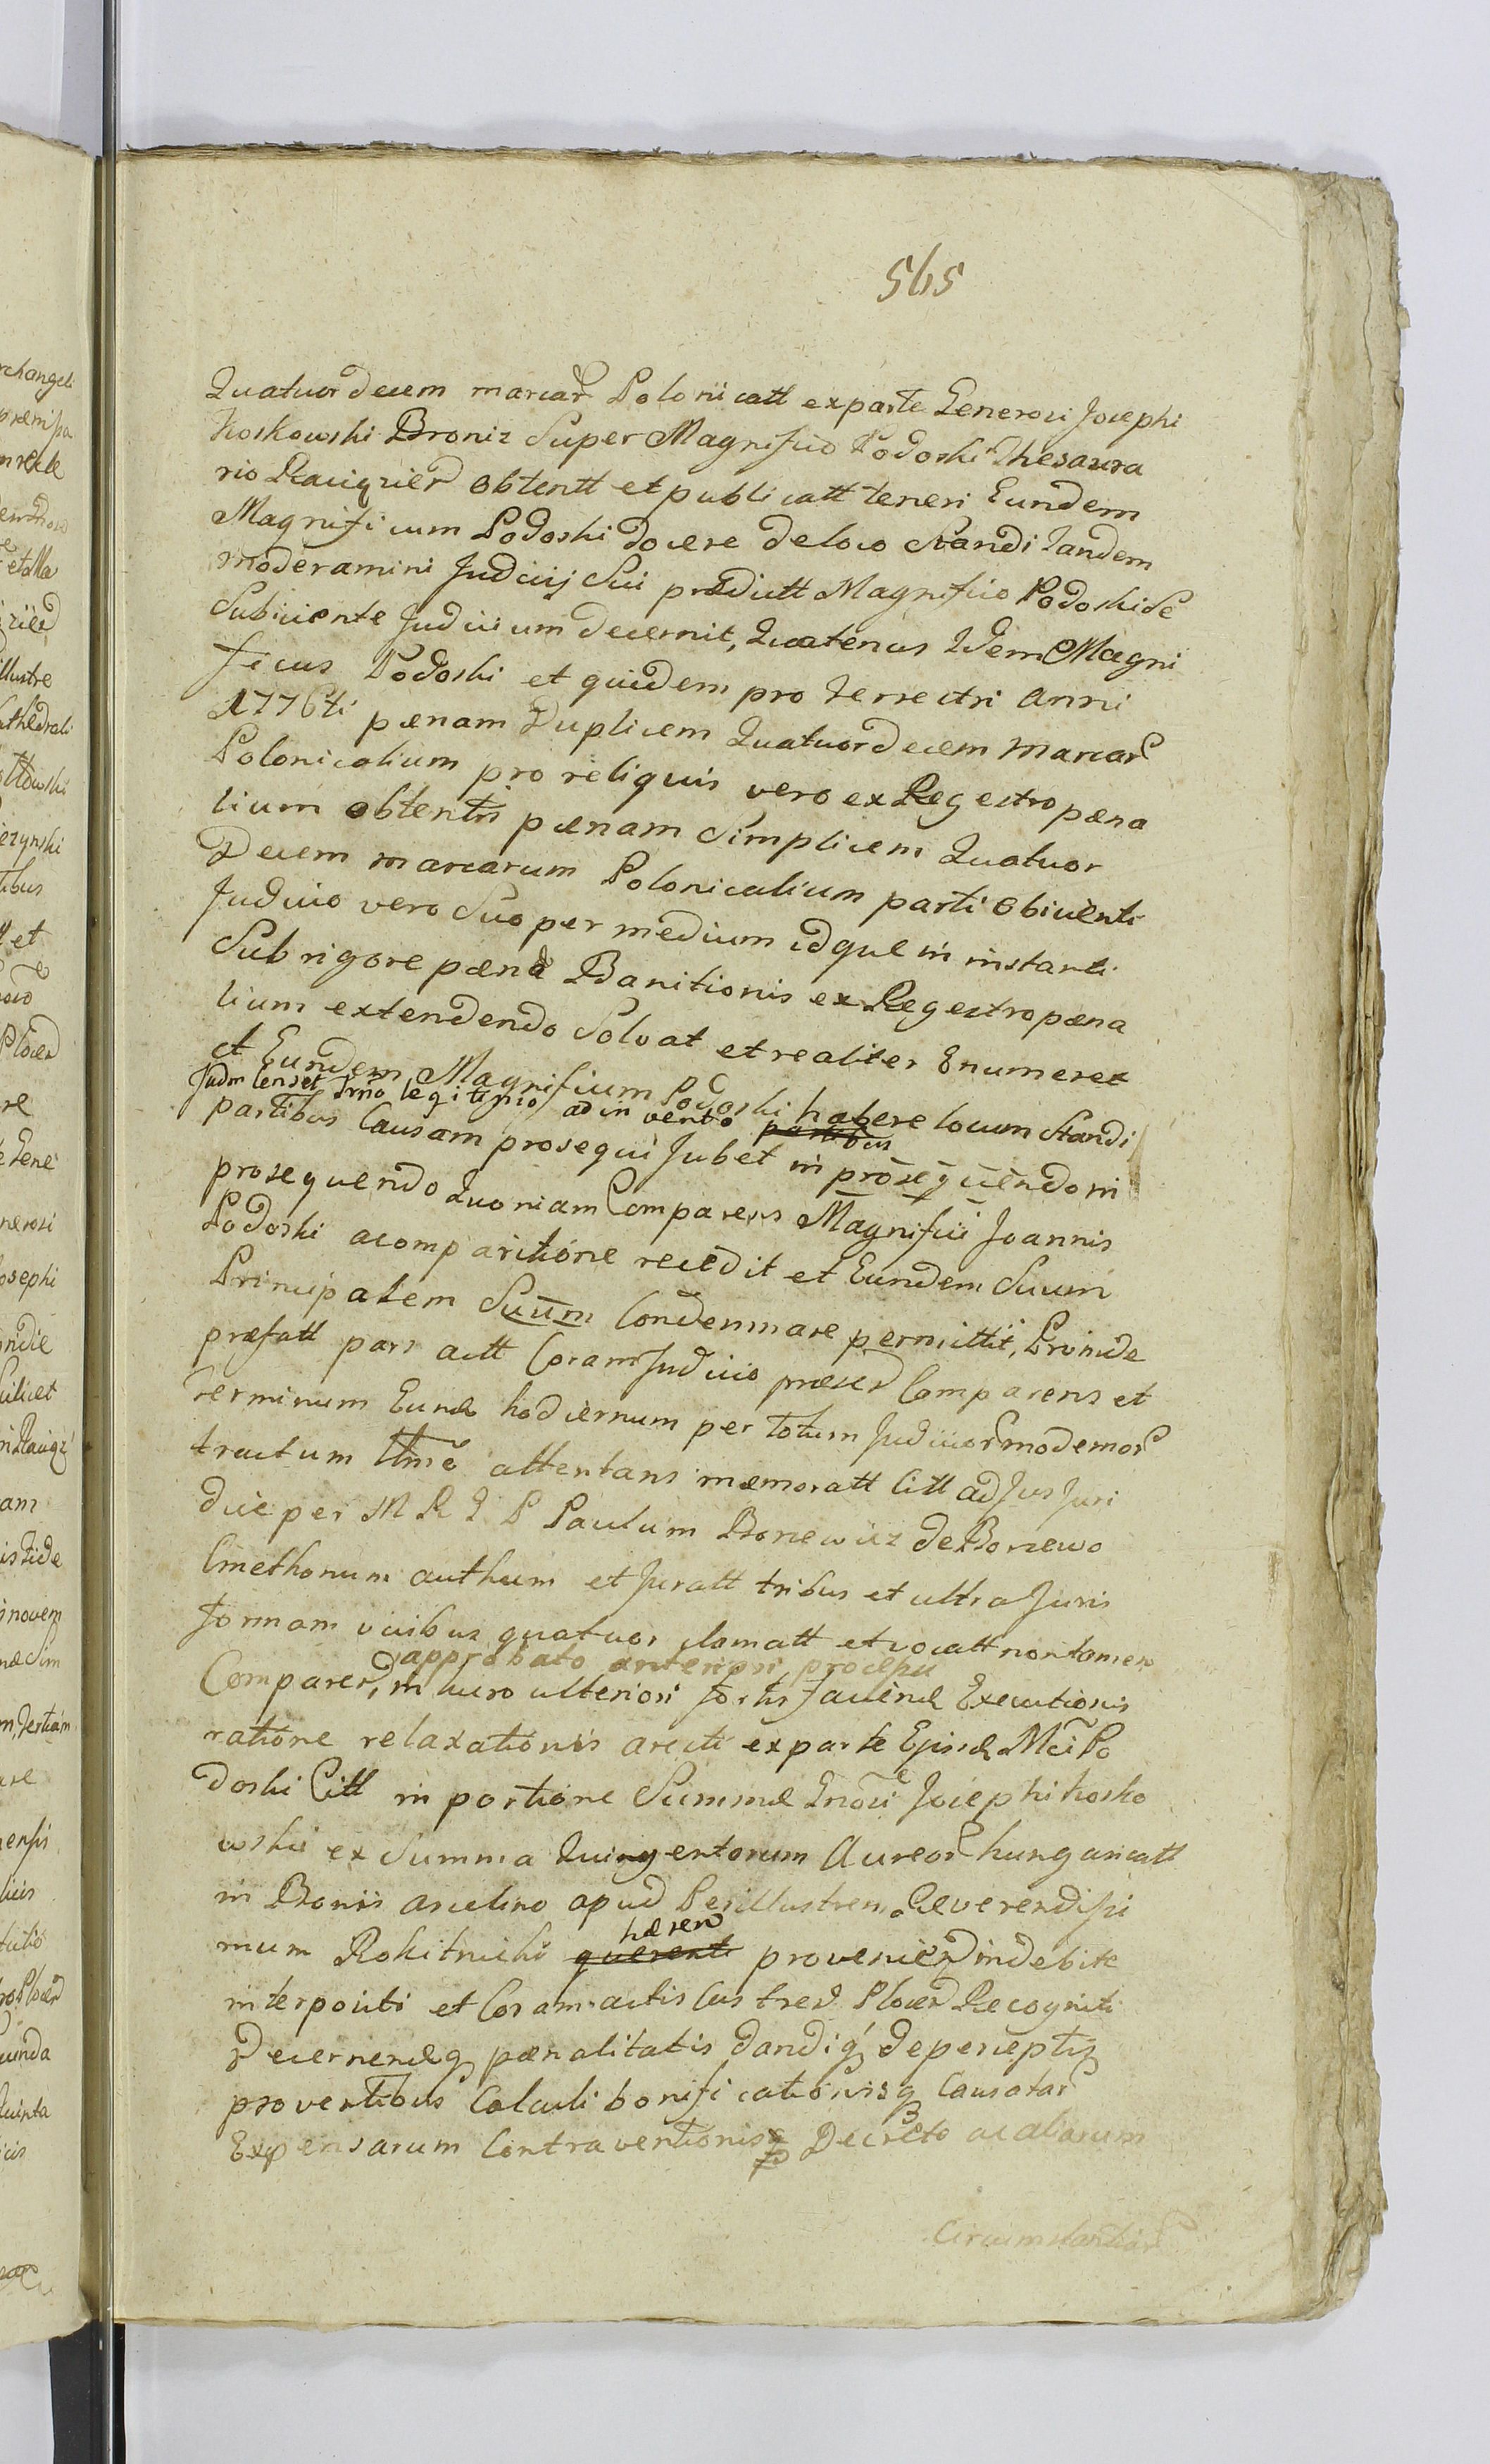 565
Quatuordecem marcar Polonicatt ex parte Generosi Josephi
Koskowski Broniz Super Magnifico Podoski Thesaura
rio Raciąziers obtentt et publicatt teneri Eundem
Magnificum Podoski docere de loco Standi Tandem
moderamini Judicij Sui prædictt Magnifico Podoski Se
Subiiciente Judicium decernit, Quatenus Idem Magni
ficus Podoski et quidem pro Terrestri Anni
1776ti pænam Duplicem Quatuordecem Marcar
Polonicalium pro reliquis vero ex Regestro pæna
lium obtentis pænam Simplicem Quatuor
Decem marcarum Polonicalium parti obiicienti
Judicio vero Suo per medium idque in instanti
Sub rigore pænæ Banitionis ex Regestro pæna
lium extendendo Solvat et realiter Enumeret
et Eundem Magnificum Podoski habere locum Standi
Judm Censet Trno legitimo adinvento partibus
partibus Causam prosequi Jubet in prosequendo in
prosequendo Quoniam Comparens Magnifici Joannis
Podoski a comparitione recedit et Eundem Suum
Principalem Suum Condemnare permittit, Proinde
præfatt pars actt Coram Judicio præsen Comparens et
Terminum Eund hodiernum per totum Judicior modernor
tractum Ltme attentans memoratt Citt ad Jus Juri
dice per M R I P Paulum Boniewicz de Boniewo
Cmethonum authum et Juratt tribus et ultra Juris
formam vicibus quatuor clamatt et vocatt non tamen
approbato anteriori processu
Comparen, in lucro ulteriori fortis faciend Executionis
ratione relaxationis aresti ex parte Ejusd Mci Po
doski Citt in portione Summæ Gnosi Josephi Kosko
wski ex Summa Quingentorum Aureor hungaricatt
in Bonis Arcelino apud Perillustrem Reverendissi
hæren
mum Rokitnicki querenti provenien indebite
interpositi et Coram actis Castren Plocen Recogniti
Decernendæq pænalitatis dandiq de perceptis
proventibus Calculi bonificationisq Causatar
Expensarum Contraventionisq Decreto ac aliarum
Circumstantiar